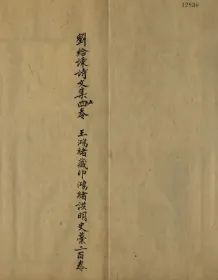 劉給諫詩文集四卷　王鴻緒藏印鴻緒撰明史藁三百卷